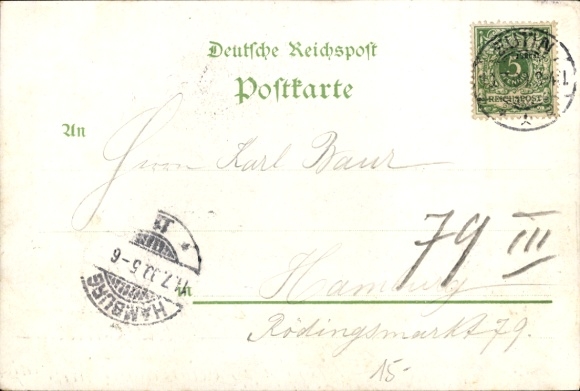 Deutsche Reichspost
Postkarte
EUTIN
5
REICHSPOST
An
Herrn Karl Baur
79 III
HAMBURG
11.7.99.5-6
in
Hamburg
Rödingsmarkt 79.
15-